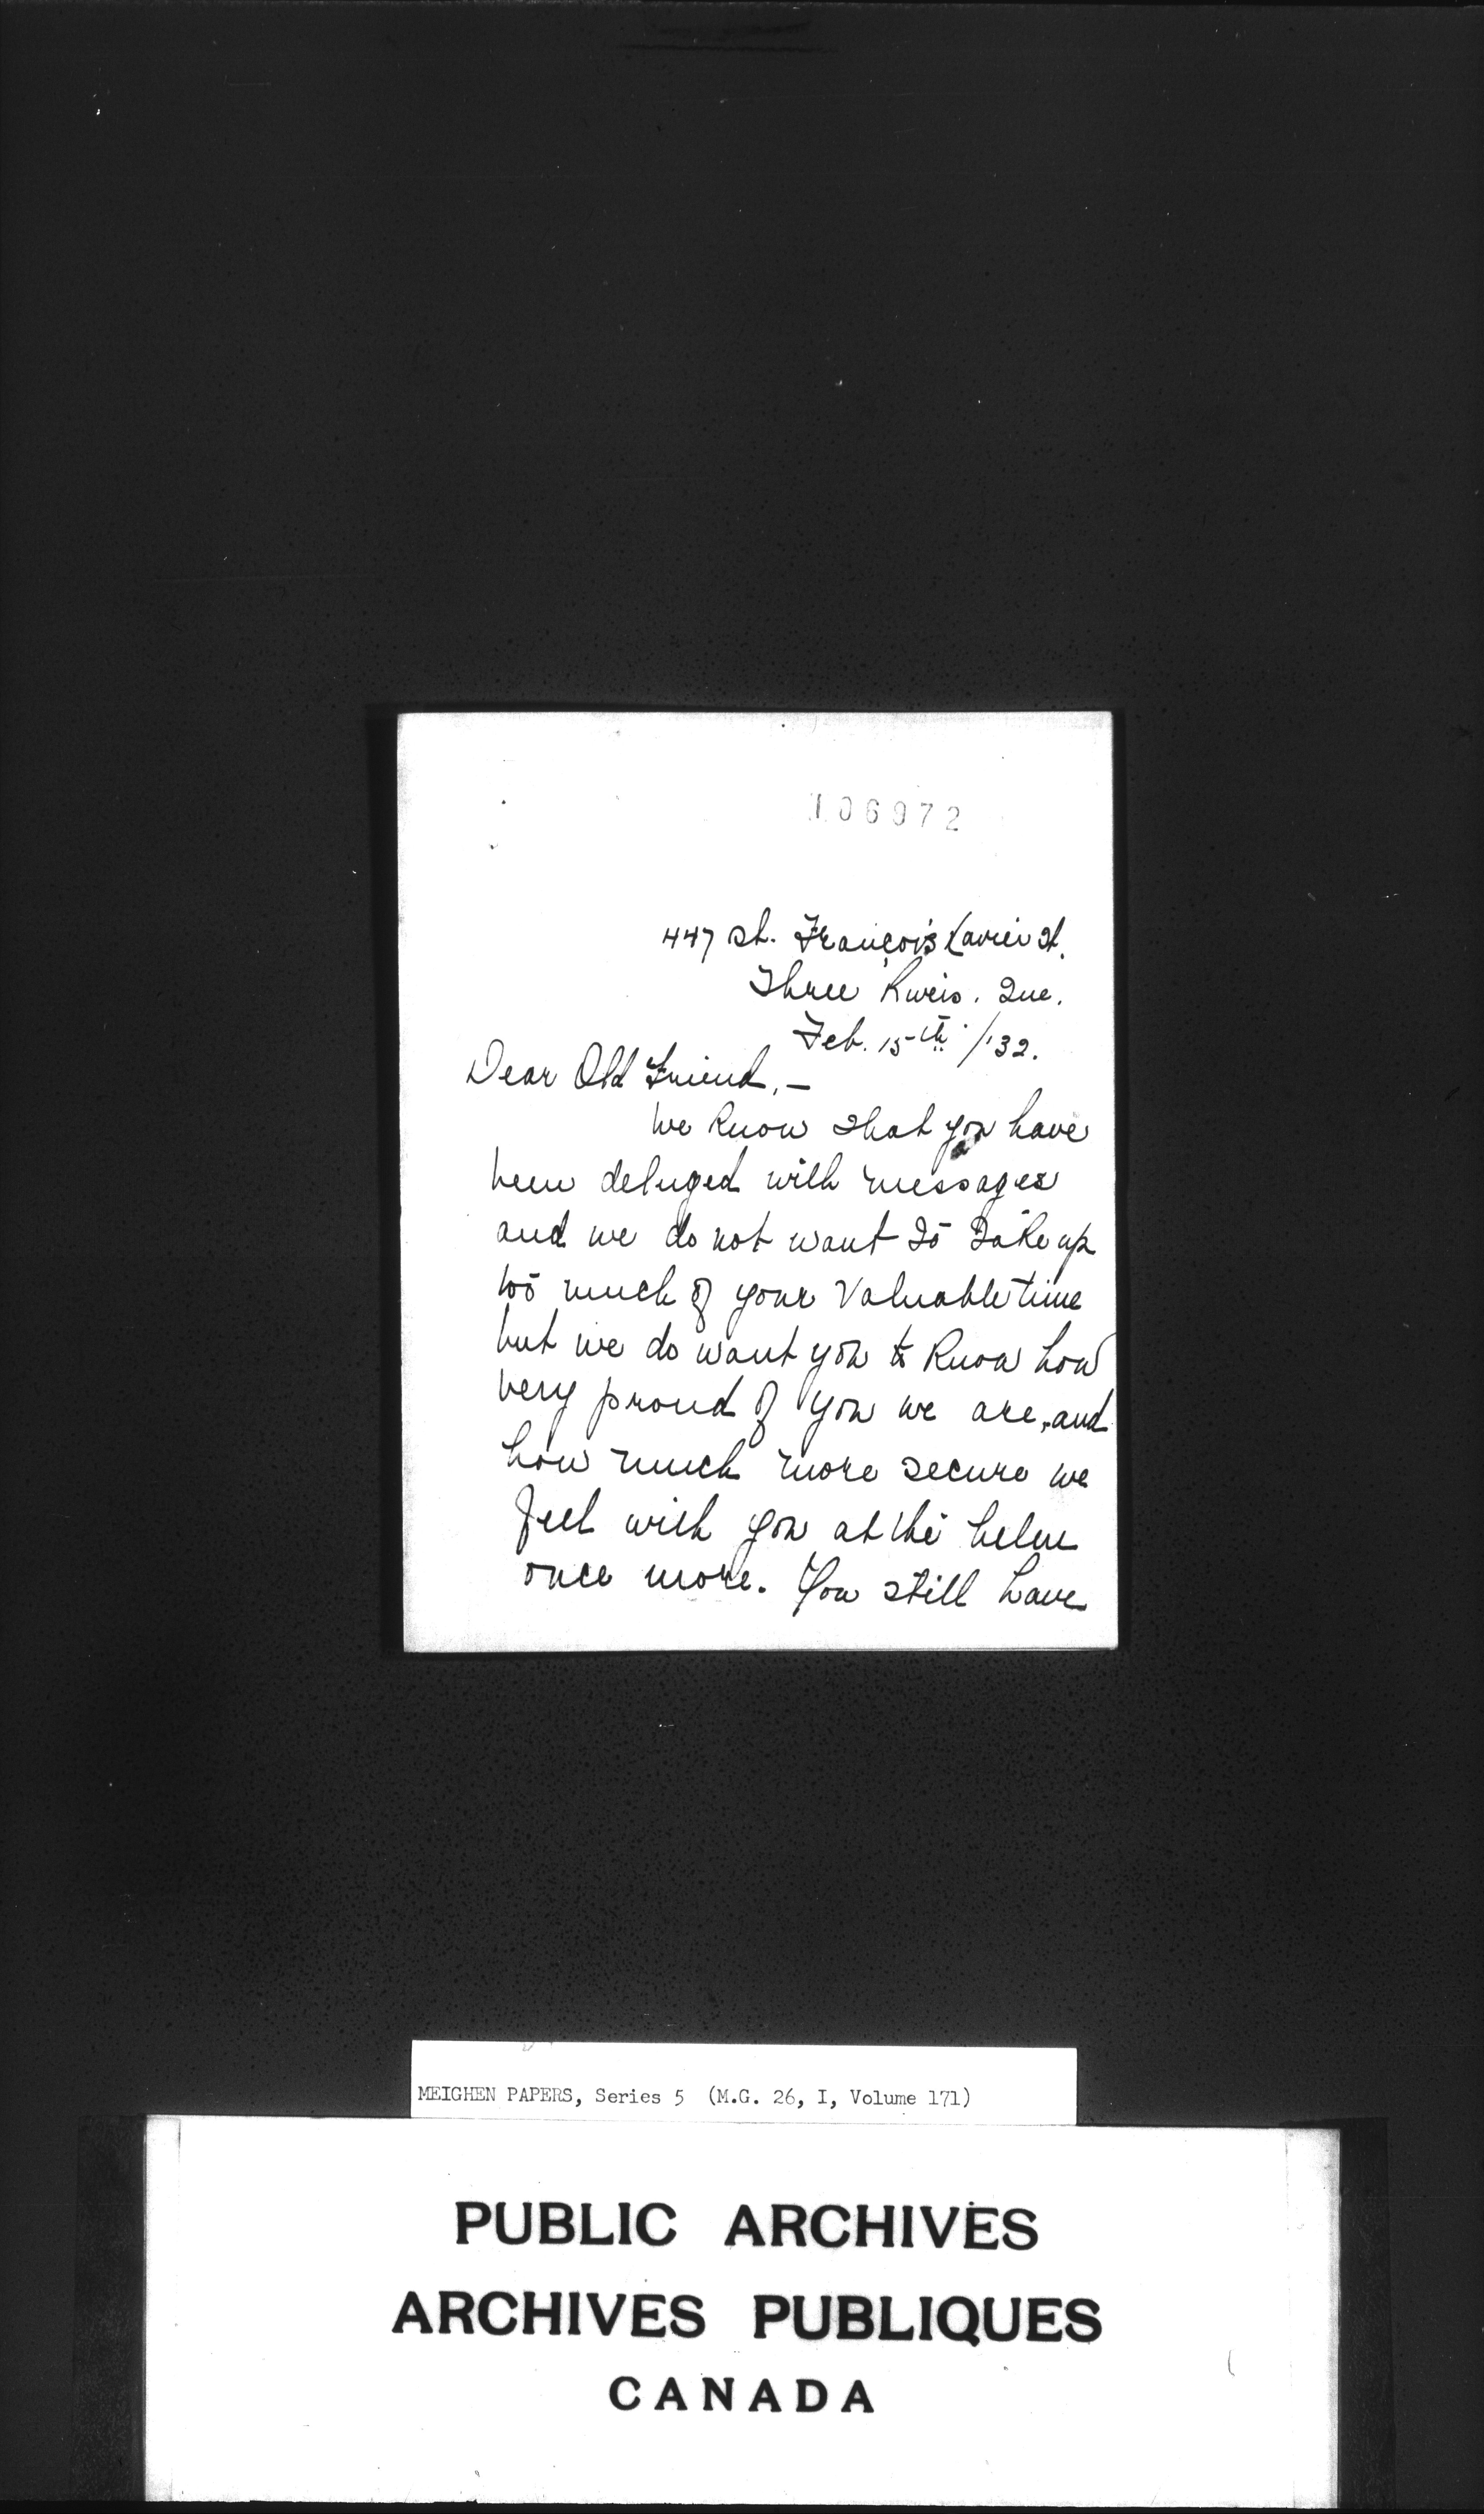 106972
447 St. François Xavier St.
Three Rivers. Que.
Feb. 15th /'32.
Dear Old Friend,—
We know that you have
been deluged with messages
and we do not want to take up
too much of your valuable time
but we do want you to know how
very proud of you we are, and
how much more secure we
feel with you at the helm
once more. You still have
MEIGHEN PAPERS, Series 5 (M.G. 26, I, Volume 171)
PUBLIC ARCHIVES
ARCHIVES PUBLIQUES
CANADA